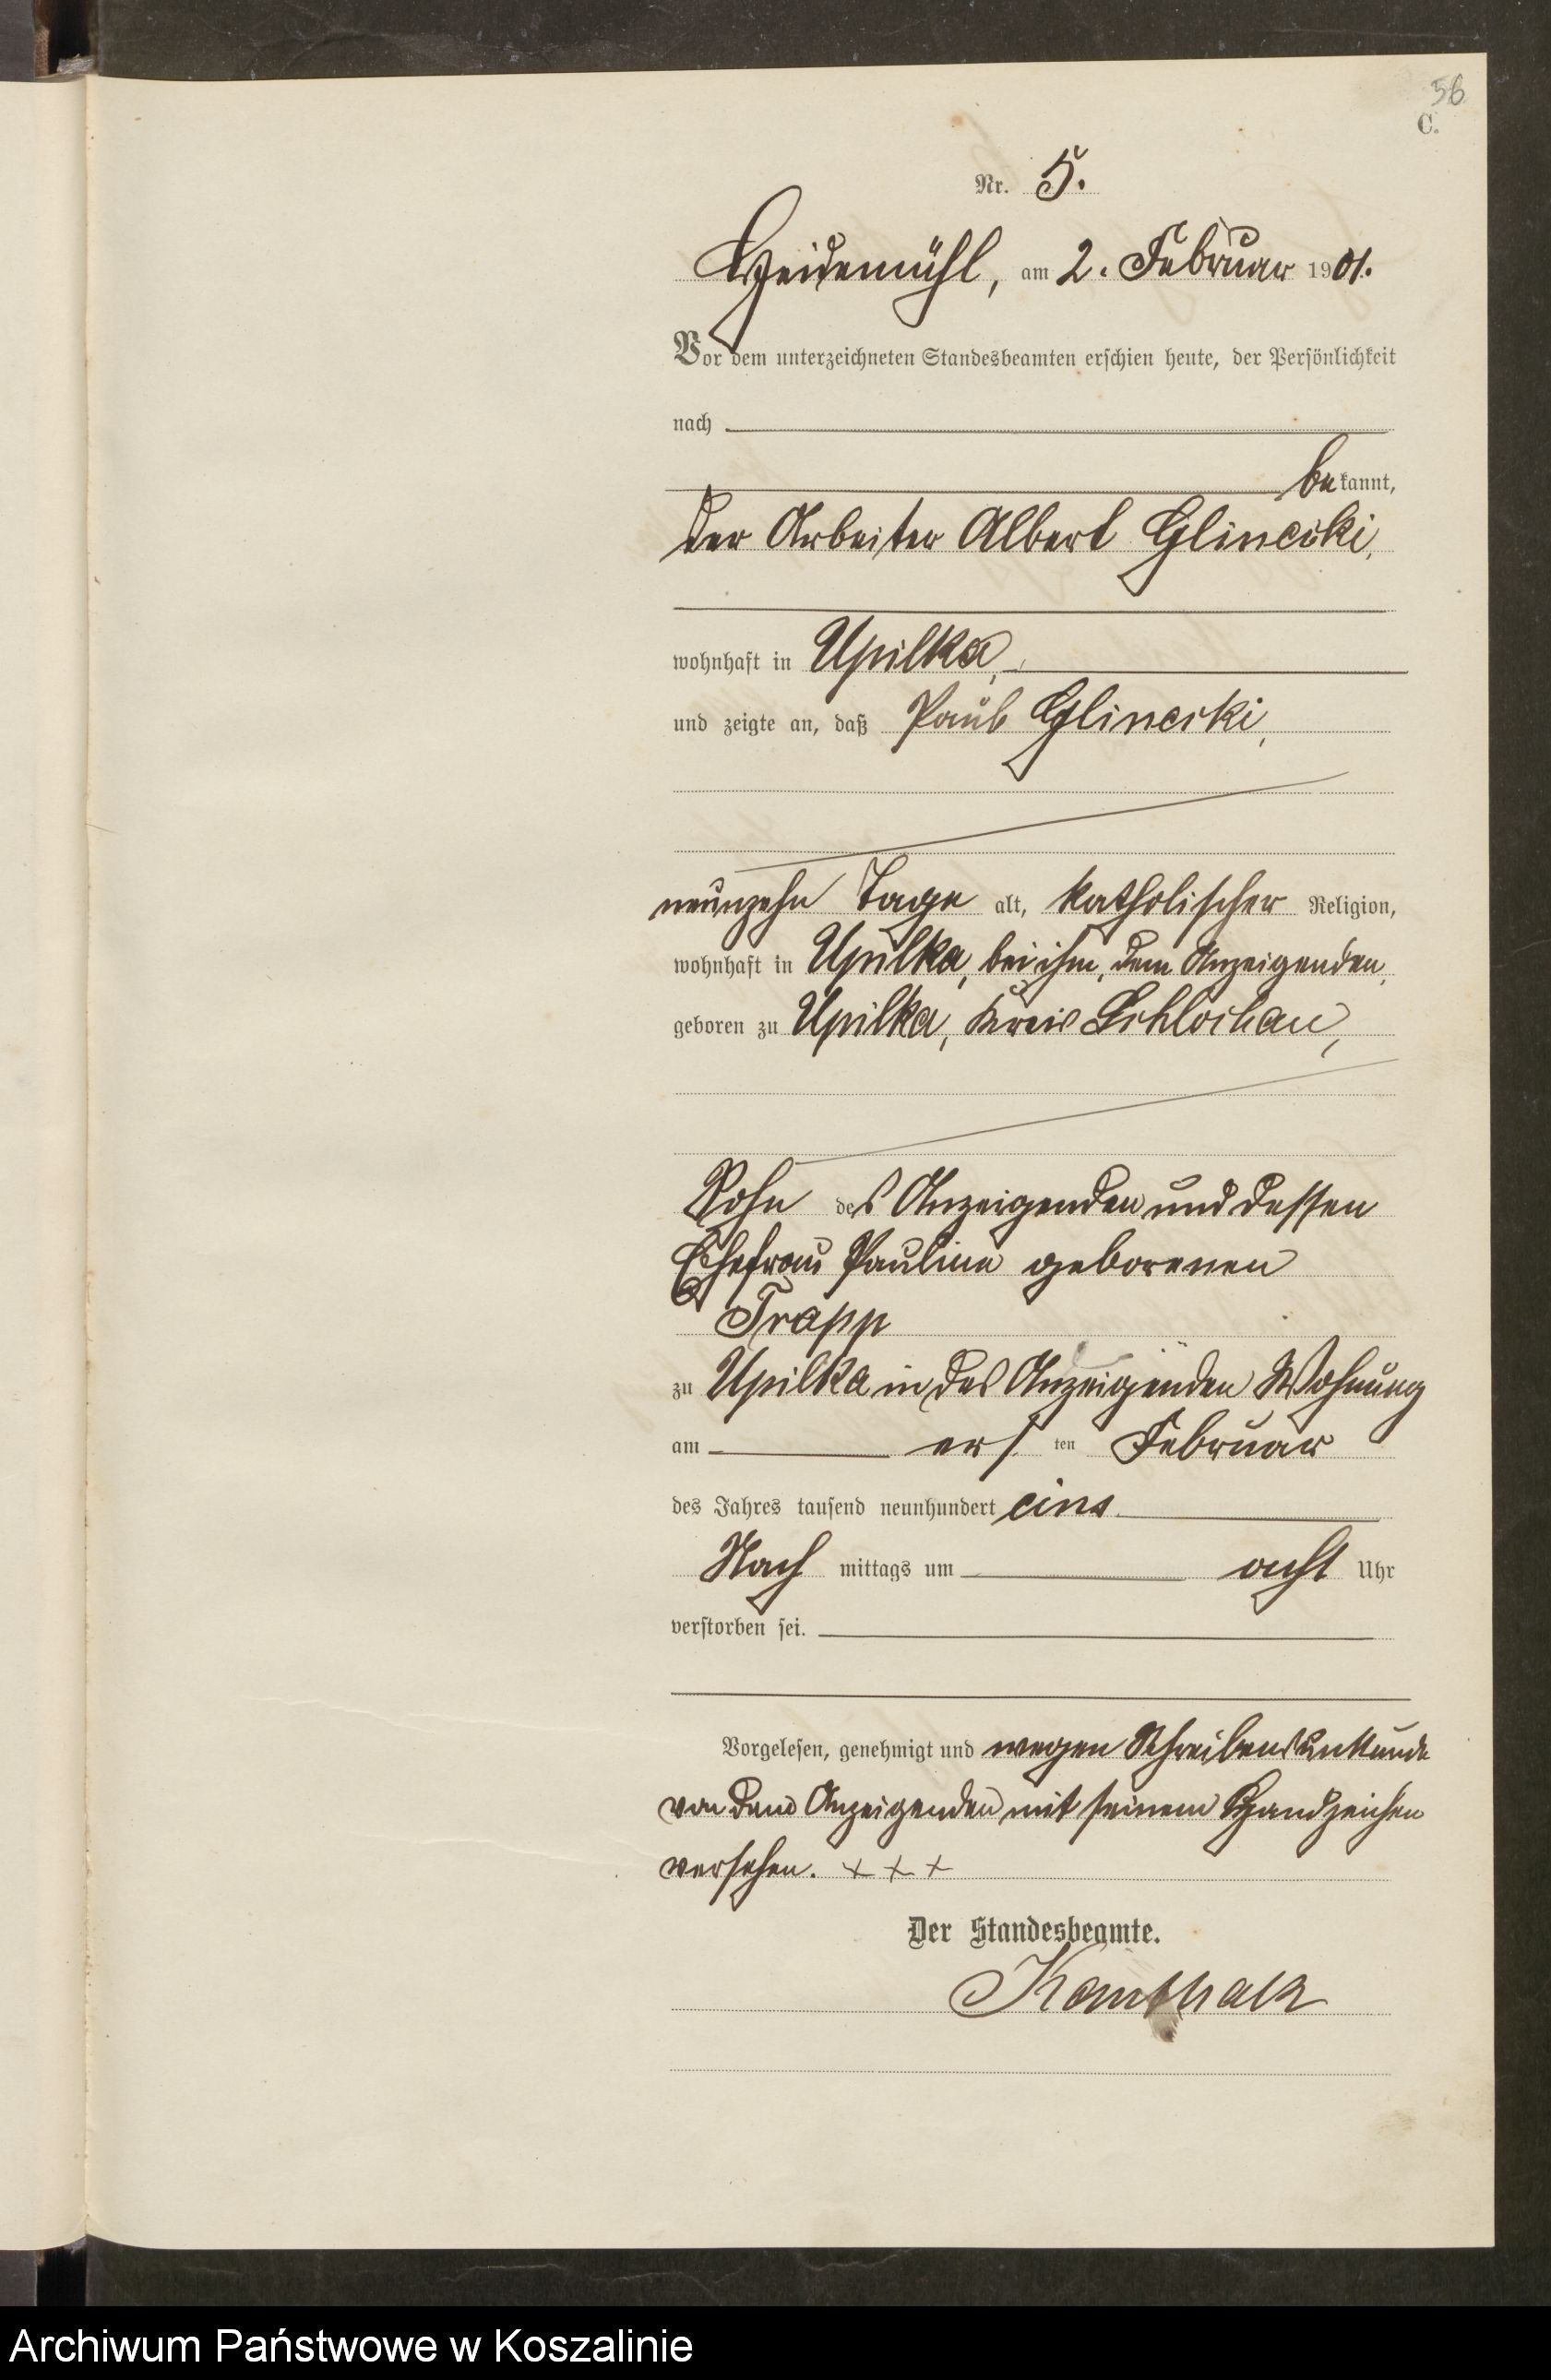 56
C.
Nr. 5.
Heidemühl, am 2. Februar 1901.
Vor dem unterzeichneten Standesbeamten erschien heute, der Persönlichkeit
nach
bekannt,
der Arbeiter Albert Glinciki,
wohnhaft in Upilka,
und zeigte an, daß Paul Glinciki,
neunzehn Tage alt, katholischer Religion,
wohnhaft in Upilka, bei ihm, dem Anzeigenden,
geboren zu Upilka, Kreis Schlochau,
Sohn des Anzeigenden und dessen
Ehefrau Pauline geborenen
Trapp
zu Upilka in des Anzeigenden Wohnung
am ersten Februar
des Jahres tausend neunhundert eins
Nachmittags um acht Uhr
verstorben sei.
Vorgelesen, genehmigt und wegen Schreibensunkunde
von dem Anzeigenden mit seinem Handzeichen
versehen. + + +
Der Standesbeamte.
Archiwum Państwowe w Koszalinie